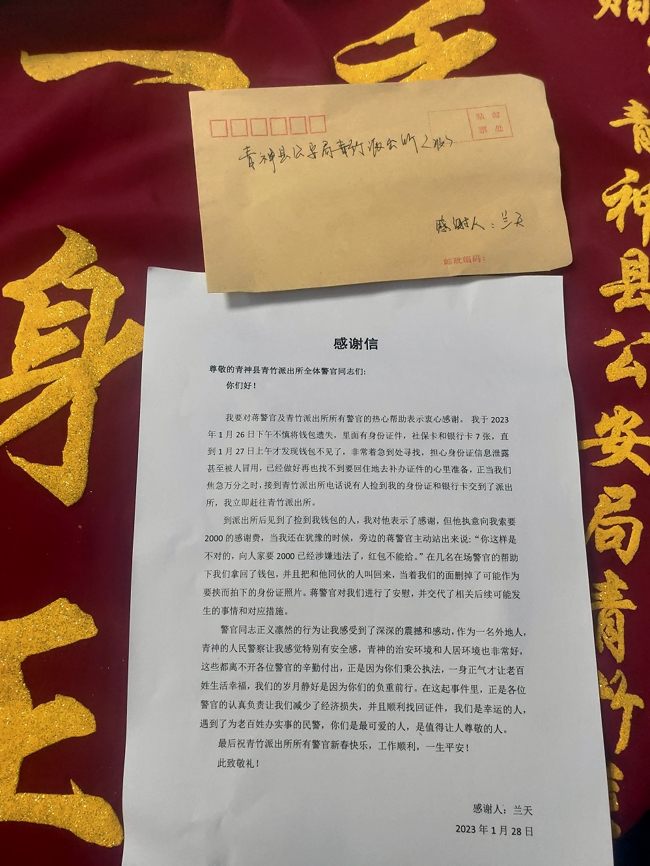 一
身
正
青神县公安局青
贴邮
票处
青神县公安局青竹派出所
感谢人：兰天
邮政编码：
感谢信
尊敬的青神县青竹派出所全体警官同志们：
你们好！
我要对蒋警官及青竹派出所所有警官的热心帮助表示衷心感谢。 我于 2023
年 1 月 26 日下午不慎将钱包遗失，里面有身份证件，社保卡和银行卡 7 张，直
到 1 月 27 日上午才发现钱包不见了，非常着急到处寻找，担心身份证信息泄露
甚至被人冒用，已经做好再也找不到要回住地去补办证件的心里准备，正当我们
焦急万分之时，接到青竹派出所电话说有人捡到我的身份证和银行卡交到了派出
所，我立即赶往青竹派出所。
到派出所后见到了捡到我钱包的人，我对他表示了感谢，但他执意向我索要
2000 的感谢费，当我还在犹豫的时候，旁边的蒋警官主动站出来说：“你这样是
不对的，向人家要 2000 已经涉嫌违法了，红包不能给。”在几名在场警官的帮助
下我们拿回了钱包，并且把和他同伙的人叫回来，当着我们的面删掉了可能作为
要挟而拍下的身份证照片。蒋警官对我们进行了安慰，并交代了相关后续可能发
生的事情和对应措施。
警官同志正义凛然的行为让我感受到了深深的震撼和感动，作为一名外地人，
青神的人民警察让我感觉特别有安全感，青神的治安环境和人居环境也非常好，
这些都离不开各位警官的辛勤付出，正是因为你们秉公执法，一身正气才让老百
姓生活幸福，我们的岁月静好是因为你们的负重前行。在这起事件里，正是各位
警官的认真负责让我们减少了经济损失，并且顺利找回证件，我们是幸运的人，
遇到了为老百姓办实事的民警，你们是最可爱的人，是值得让人尊敬的人。
最后祝青竹派出所所有警官新春快乐，工作顺利，一生平安！
此致敬礼！
感谢人：兰天
2023 年 1 月 28 日